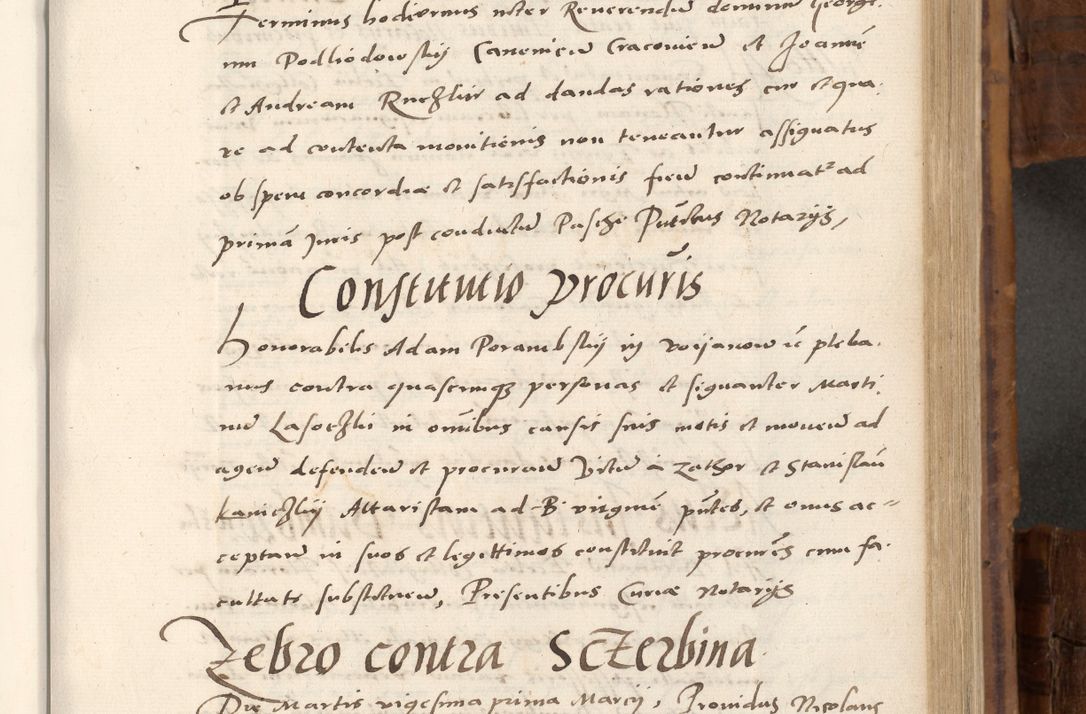 Terminus hodiernus inter Reverendū dominū Georgi.
um Podlodowskij Canonicū Cracovieñ et Joannē
et Andream Ruczkir ad dandas rationes cur et qua.
re ad contenta monitionis non teneantur assignatus
ob spem concordiæ et satisfactionis fieñ continuatʳ ad
primā Juris post conductū Paschę Pñtibus Notarijs,
Constitutio procuris
honorabilis Adam Porambskij in voijanow ic pleba.
nus contra quascunqꝫ personas et signanter Marti.
nū Lasoczki in oībus causis suis motis et moueñ ad
ageñ defendeñ et procurañ Victū à Zathor et Stanislaū
kaniczkij Altaristam ad B virginē pñtes, et onus ac=
ceptañ in suos et legittimos constituit procurēs cum fa.
cultate substitueñ, Presentibus Curiæ notarijs
Zebro contra Sczerbina
Die Martis vigesima prima Marcij, Providus Nicolaus